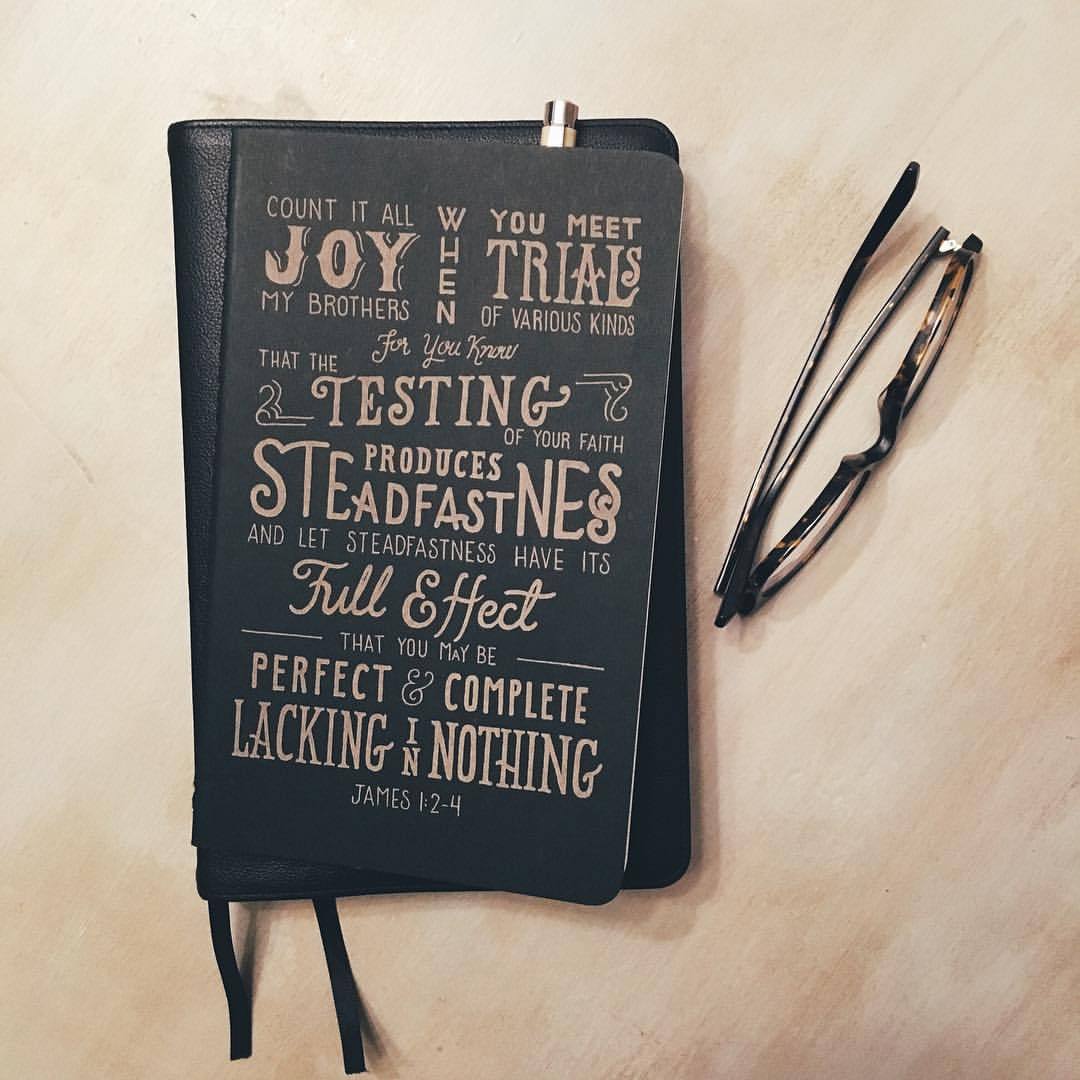 COUNT IT ALL
JOY
MY BROTHERS
WHEN
YOU MEET
TRIALS
OF VARIOUS KINDS
For You Know
THAT THE
TESTING
OF YOUR FAITH
PRODUCES
STEADFASTNESS
AND LET STEADFASTNESS HAVE ITS
Full Effect
THAT YOU MAY BE
PERFECT & COMPLETE
LACKING IN NOTHING
JAMES 1:2-4